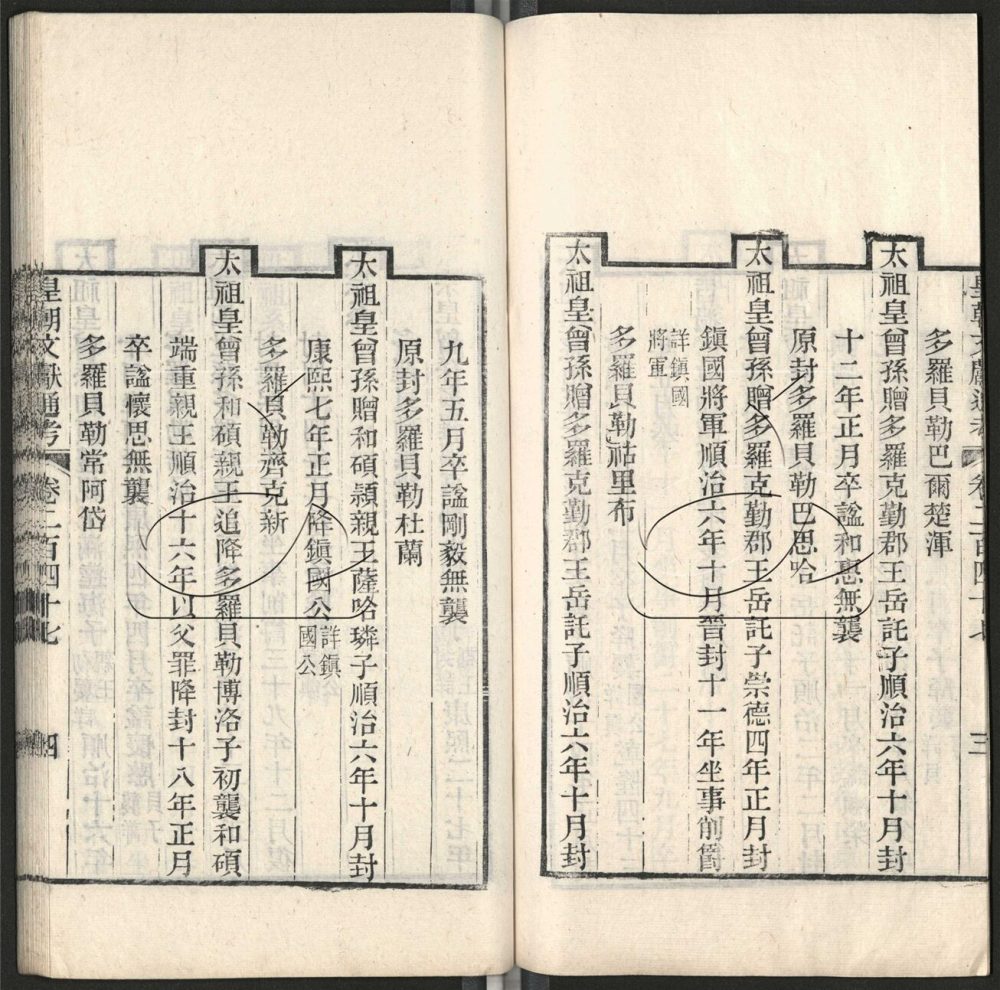 皇朝文獻通考 卷二百四十七 三
多羅貝勒巴爾楚渾
太祖皇曾孫贈多羅克勤郡王岳託子順治六年十月封
十二年正月卒諡和惠無襲
原封多羅貝勒巴思哈
太祖皇曾孫贈多羅克勤郡王岳託子崇德四年正月封
鎮國將軍順治六年十月晉封十一年坐事削爵
詳鎮國
將軍
多羅貝勒祜里布
太祖皇曾孫贈多羅克勤郡王岳託子順治六年十月封
九年五月卒諡剛毅無襲
原封多羅貝勒杜蘭
太祖皇曾孫贈和碩穎親王薩哈璘子順治六年十月封
康熙七年正月降鎮國公
詳鎮
國公
多羅貝勒齊克新
太祖皇曾孫和碩親王追降多羅貝勒博洛子初襲和碩
端重親王順治十六年以父罪降封十八年正月
卒諡懷思無襲
多羅貝勒常阿岱
皇朝文獻通考 卷二百四十七 四